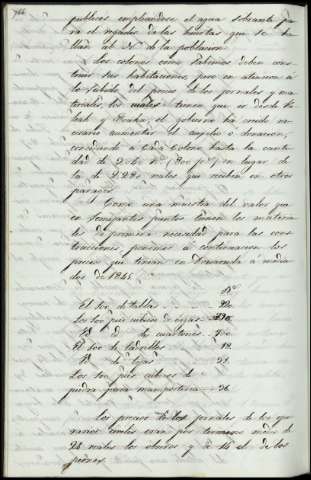 766
publicas empleandose el agua sobrante pa-
ra el regadío de las huertas que se ha-
llan al N. de la poblacion.
Los colonos como sabemos deben cons-
truir sus habitaciones, pero en atencion á
lo subido del precio de los jornales y ma-
teriales, los cuales tienen que ir desde
el gobierno ha creido ne-
cesario aumentar el donacion,
concediendo á cada Colono hasta la canti-
dad de en lugar de
la de 2280 reales que reciben en otros
parages.
Como una muestra del valor que
en semejantes puntos tienen los materia-
les de primera necesidad para las cons-
trucciones, ponemos á continuacion los
precios que tenian en á media-
dos de 1845.
El 100 de tablas 92
Los 100 pies cubicos de vigas
Id. d. de cuartones
El 100 de ladrillos 12
Id. de tejas 21
Los 100 pies cubicos de
piedra para mamposteria 26
Los precios de los jornales de los ope-
rarios civiles eran por termino medio de
28 reales los obreros y á 16 el de los
peones